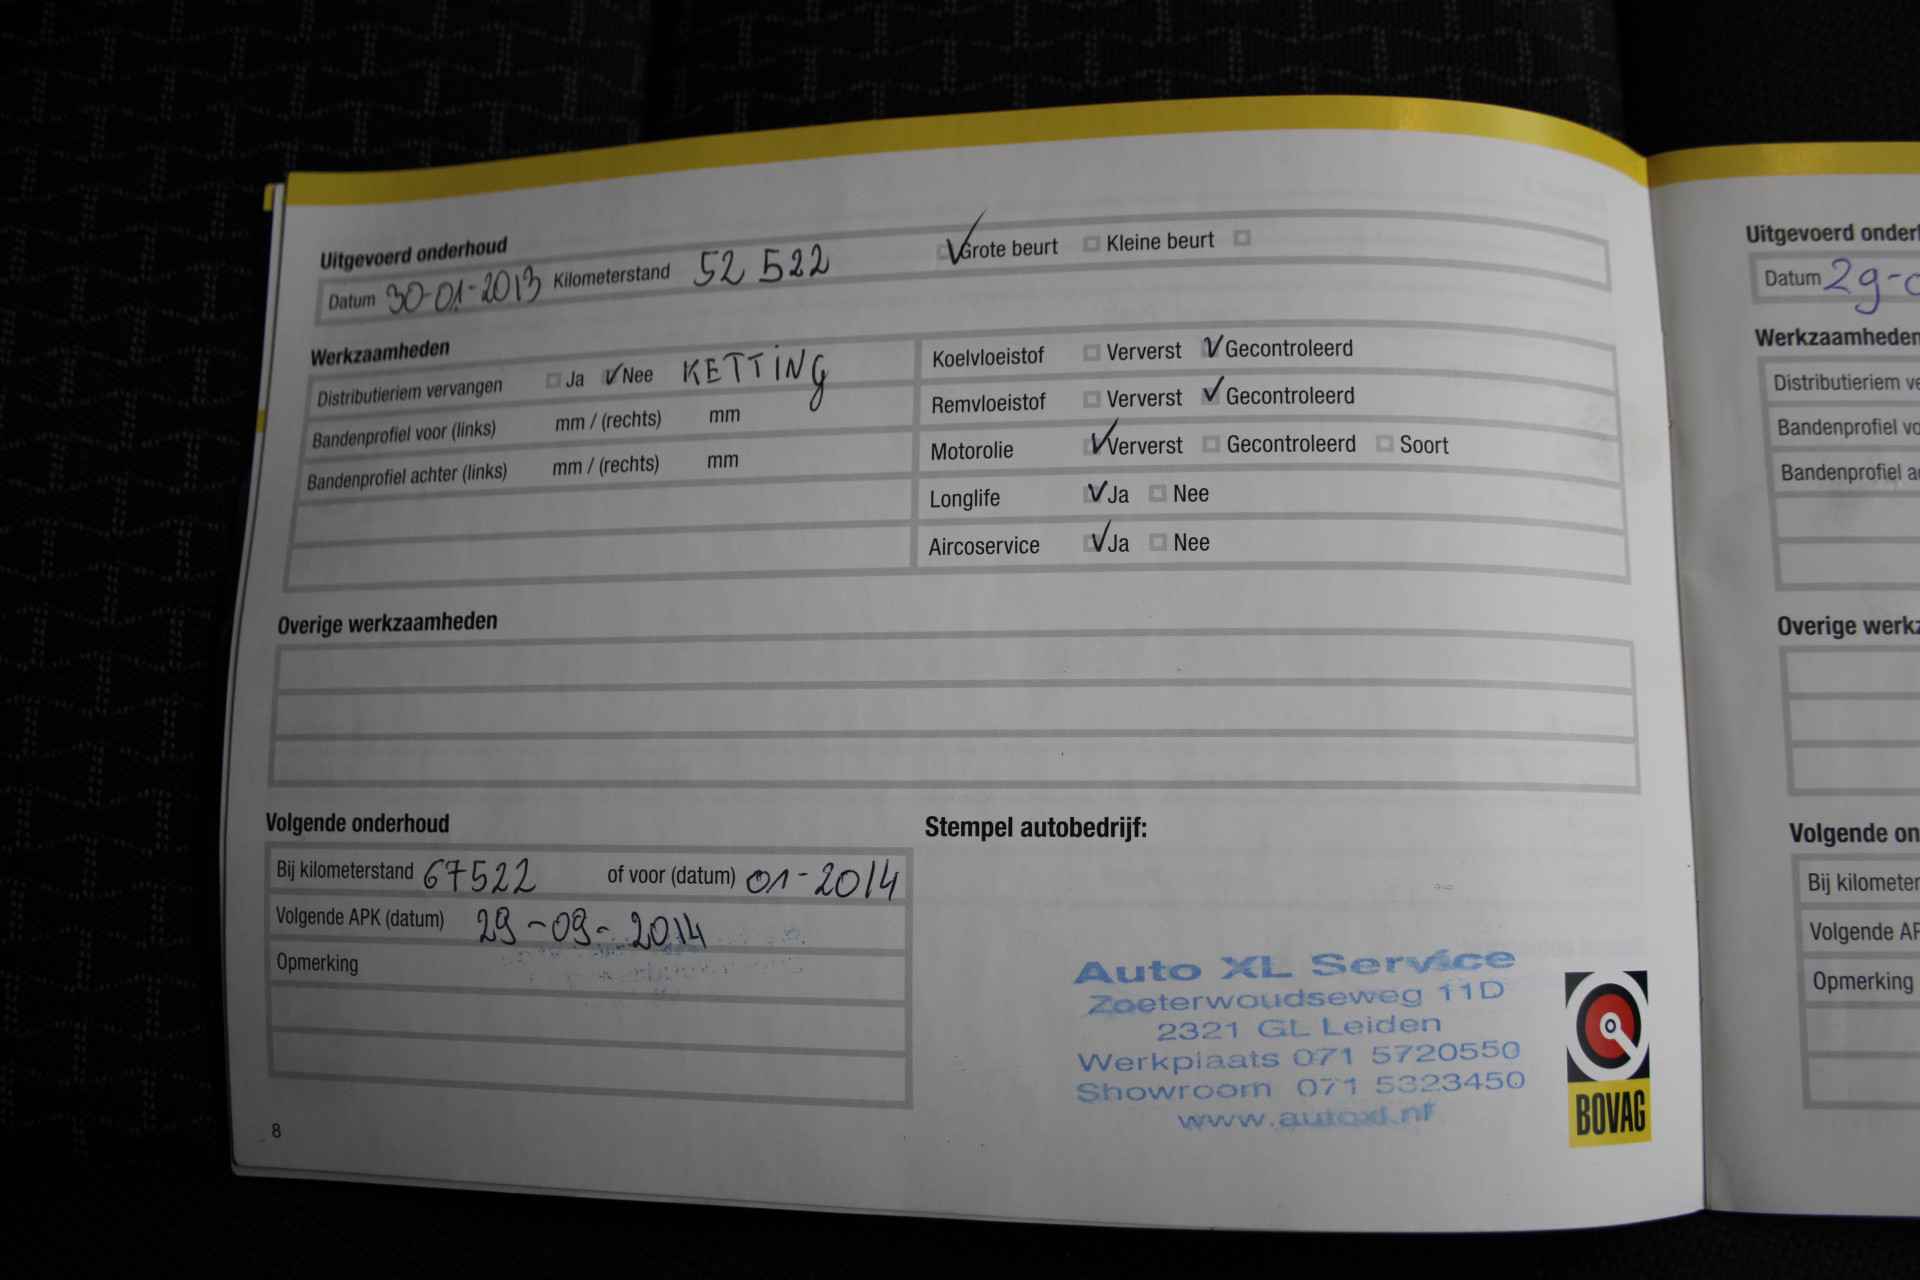 Uitgevoerd onderhoud
Datum 30-01-2013 Kilometerstand 52 522 Grote beurt Kleine beurt
Werkzaamheden
Distributieriem vervangen Ja Nee KETTING
Bandenprofiel voor (links) mm / (rechts) mm
Bandenprofiel achter (links) mm / (rechts) mm
Koelvloeistof Ververst Gecontroleerd
Remvloeistof Ververst Gecontroleerd
Motorolie Ververst Gecontroleerd Soort
Longlife Ja Nee
Aircoservice Ja Nee
Overige werkzaamheden
Volgende onderhoud
Bij kilometerstand 67522 of voor (datum) 01-2014
Volgende APK (datum) 29-09-2014
Opmerking
Stempel autobedrijf:
Auto XL Service
Zoeterwoudseweg 11D
2321 GL Leiden
Werkplaats 071 5720550
Showroom 071 5323450
www.autoxl.nl
BOVAG
8
Uitgevoerd
Datum 29-
Werkzaamheden
Distributieriem
Bandenprofiel
Bandenprofiel
Overige
Volgende
Bij
Volgende
Opmerking